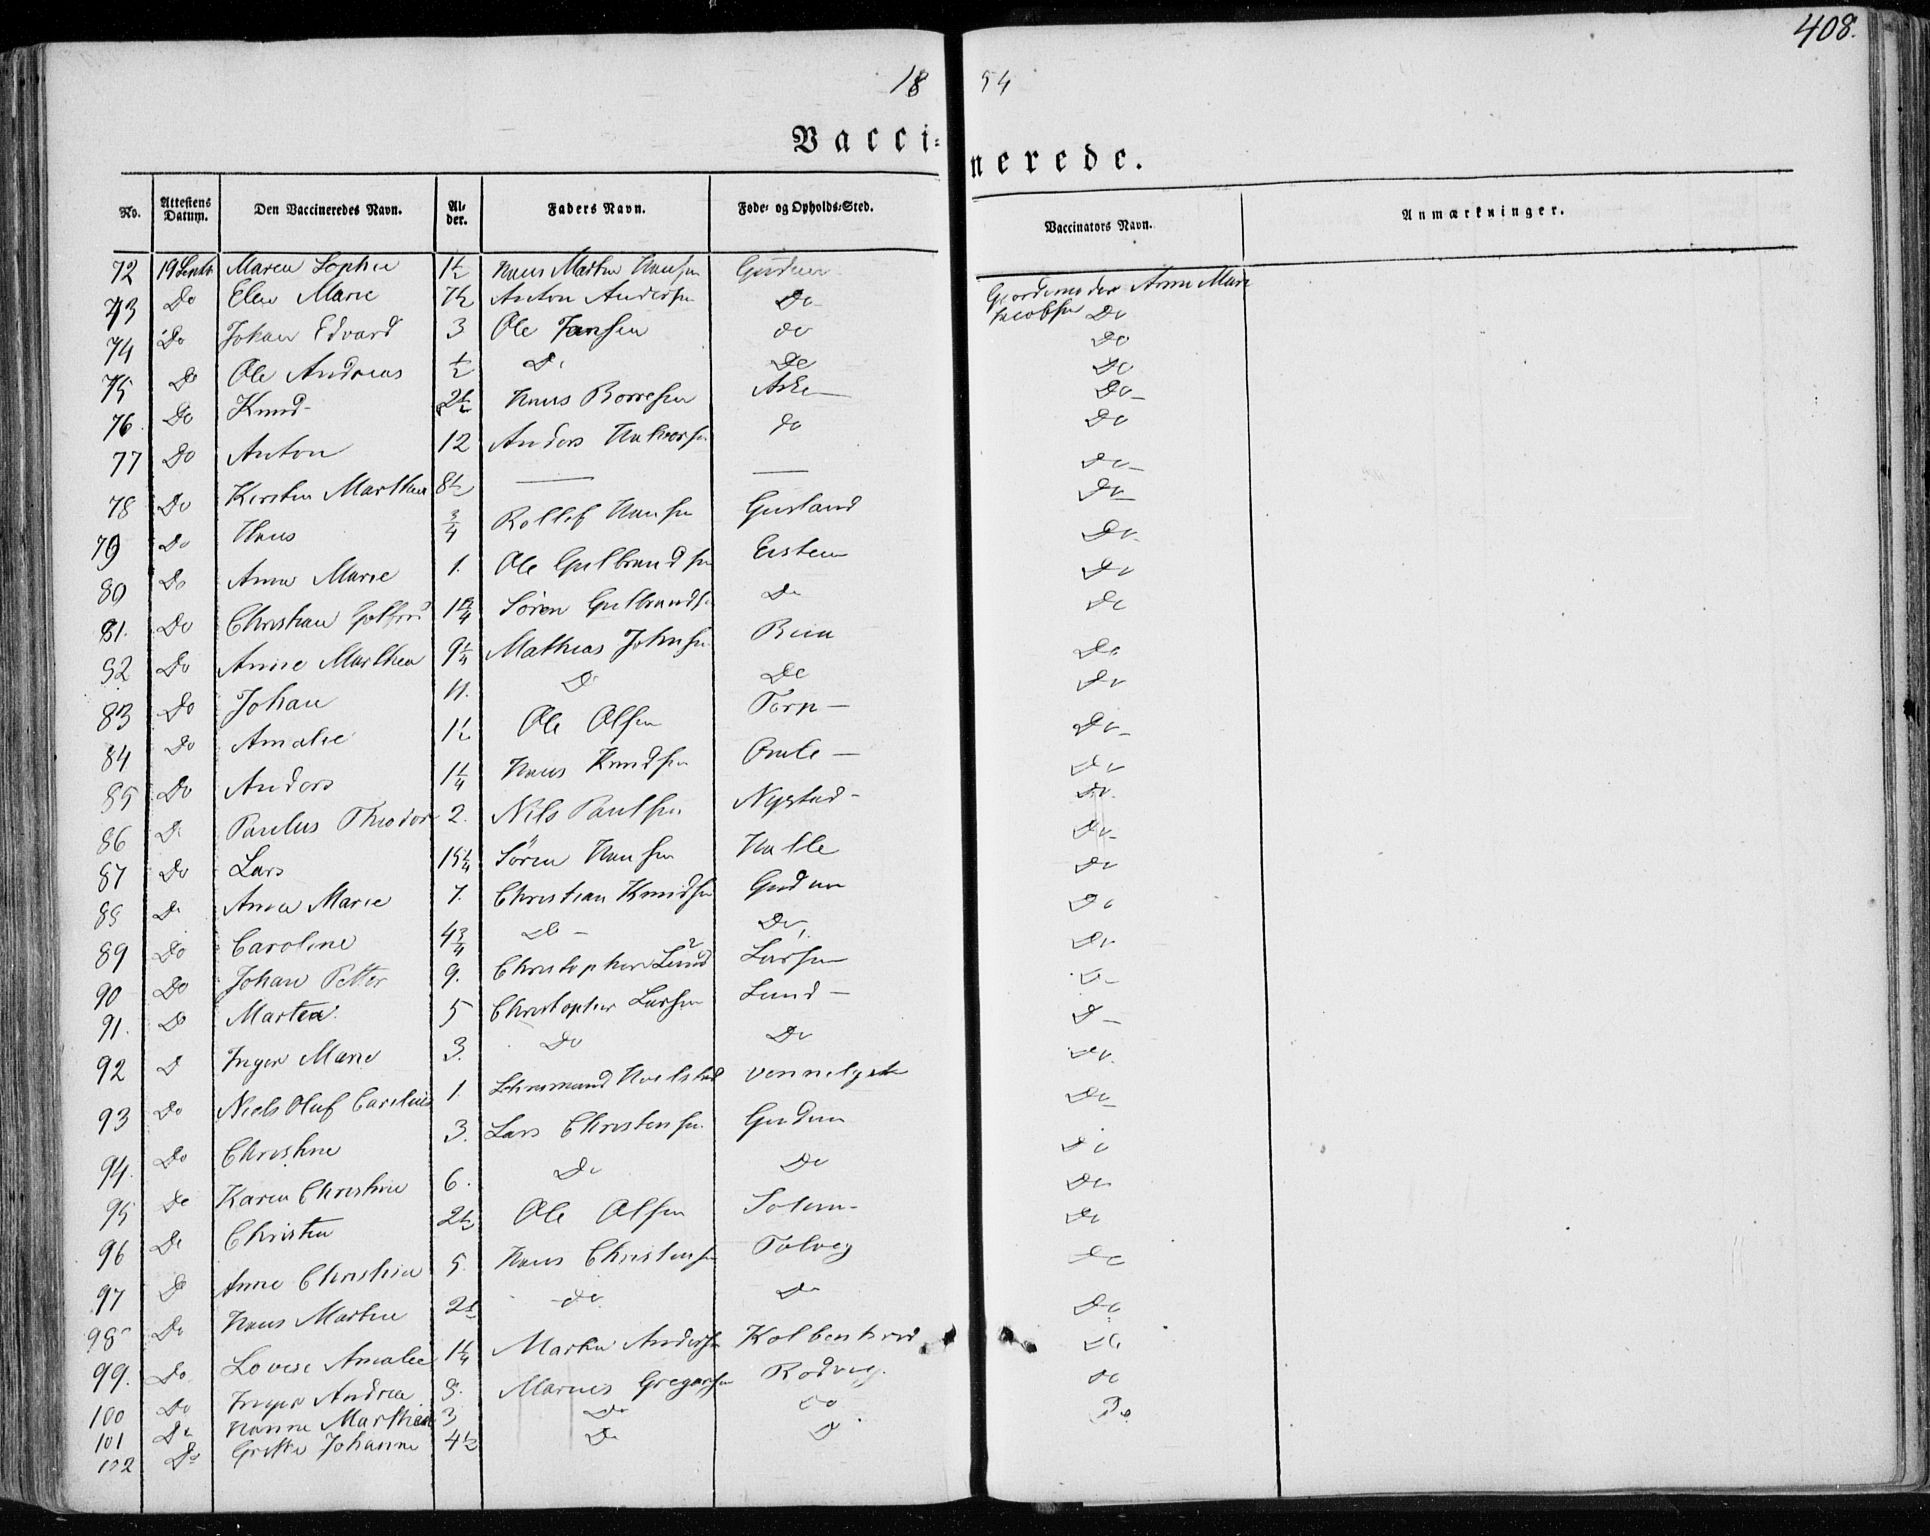 408.
18 54
Vacci- nerede.
No. Attestens Datum. Den Vaccineredes Navn. Al- der. Faders Navn. Føde- og Opholds-Sted. Vaccinators Navn. Anmærkninger.
72 19 Septb Maren Sophie 1½ Hans Martin Hansen Gudum Gjordemoder Anne Marie Jacobsen
73 Do Elen Marie 7½ Anton Andersen Do Do
74 Do Johan Edvard 3 Ole Jansen do Do
75 Do Ole Andreas ½ Do Do Do
76. Do Knud 2½ Hans Borresen Aske Do
77 Do Anton 12 Anders Halvorsen do Do
78 Do Kirstin Marthea 8½ — — Do
79 Do Hans ¾ Rollef Hansen Gusland Do
80 Do Anne Marie 1. Ole Gulbrandsen Eistein Do
81. Do Christian 1¾ Søren Gulbrandsen Do Do
82 Do Anne Marthea 9¼ Mathias Johnsen Do
83 Do Johan 11. Do Do Do
84 Do Amalie 1½ Ole Olsen Torp Do
85 Do Anders 1¼ Hans Knudsen Omle Do
86 Do Paulus Theodor 2. Nils Paulsen Nystad Do
87 Do Lars 15¼ Sören Hansen Halle Do
88 Do Anne Marie 7. Christian Knudsen Gudum Do
89 Do Caroline 4¾ Do Do Do
90 Do Johan Petter 9. Christopher Lund Larsen Do
91. Do Martea 5 Christopher Larsen Lund Do
92 Do Inger Marie 3. Do Do Do
93 Do Niels Oluf Carelius 1 vennelyst Do
94. Do Christine 3. Lars Christensen Gudum Do
95 Do Karen Christine 6. Do Do Do
96 Do Christen 2½ Ole Olsen Solum Do
97 Do Anne Christine 5. Hans Christensen Tolveg Do
98 Do Hans Martin 2½ do Do Do
99. Do Lovise Amalie 1¼ Martin Andersen Do
100 Do Inger Andrea 9. Marnis Gregersen Rodveg. do
101 Do Hanna Marthea 3 Do Do Do
102 Do Grethe Johanne 4½ Do D